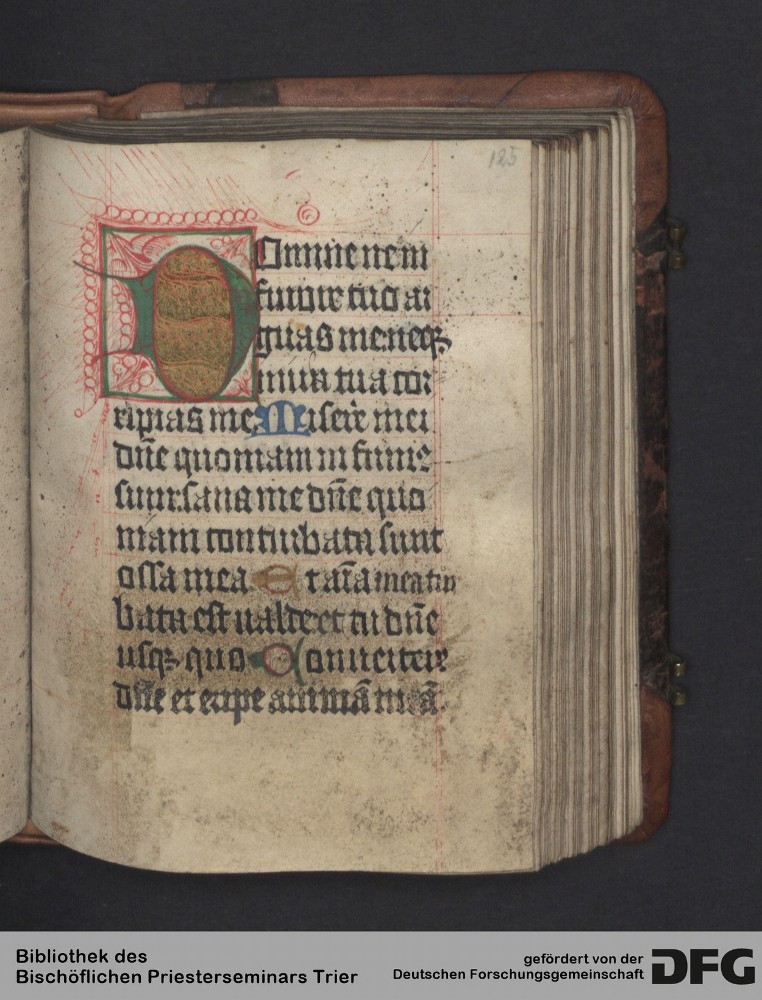 125
Domine ne in
furore tuo ar
guas me: neqꝫ
in ira tua cor
ripias me. Misere mei
dn̄e quoniam infirmꝰ
sum: sana me dn̄e quo
niam conturbata sunt
ossa mea. Et aīa mea tur
bata est ualde: et tu dn̄e
usqꝫ quo. Conuertere
dn̄e et eripe animā meā.
Bibliothek des
Bischöflichen Priesterseminars Trier
gefördert von der
Deutschen Forschungsgemeinschaft
DFG